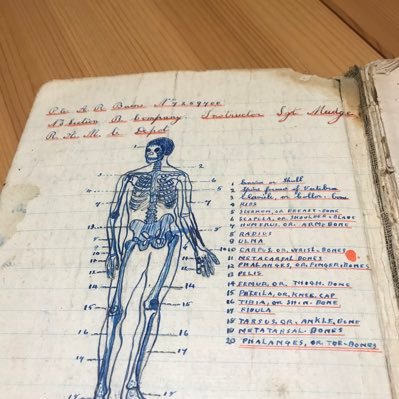 Pte A. R. No
Section B Company. Instructor Sgt Mudge
R. A. M. C Depot
1 Cranium or Skull
2 Spine formed of Vertebrae
3 Clavicle, or Collar-bone
4 RIBS
5 STERNUM, OR BREAST-BONE
6 SCAPULA, OR SHOULDER-BLADE
7 HUMERUS, OR ARM-BONE
8 RADIUS
9 ULNA
10 CARPUS, OR WRIST-BONES
11 METACARPAL BONES
12 PHALANGES, OR FINGER-BONES
13 PELIS
14 FEMUR, OR THIGH-BONE
15 PATELLA, OR, KNEE, CAP
16 TIBIA, OR SHIN-BONE
17 FIBULA
18 TARSUS, OR, ANKLE, BONE
19 METATARSAL-BONES
20 PHALANGES, OR TOE-BONES